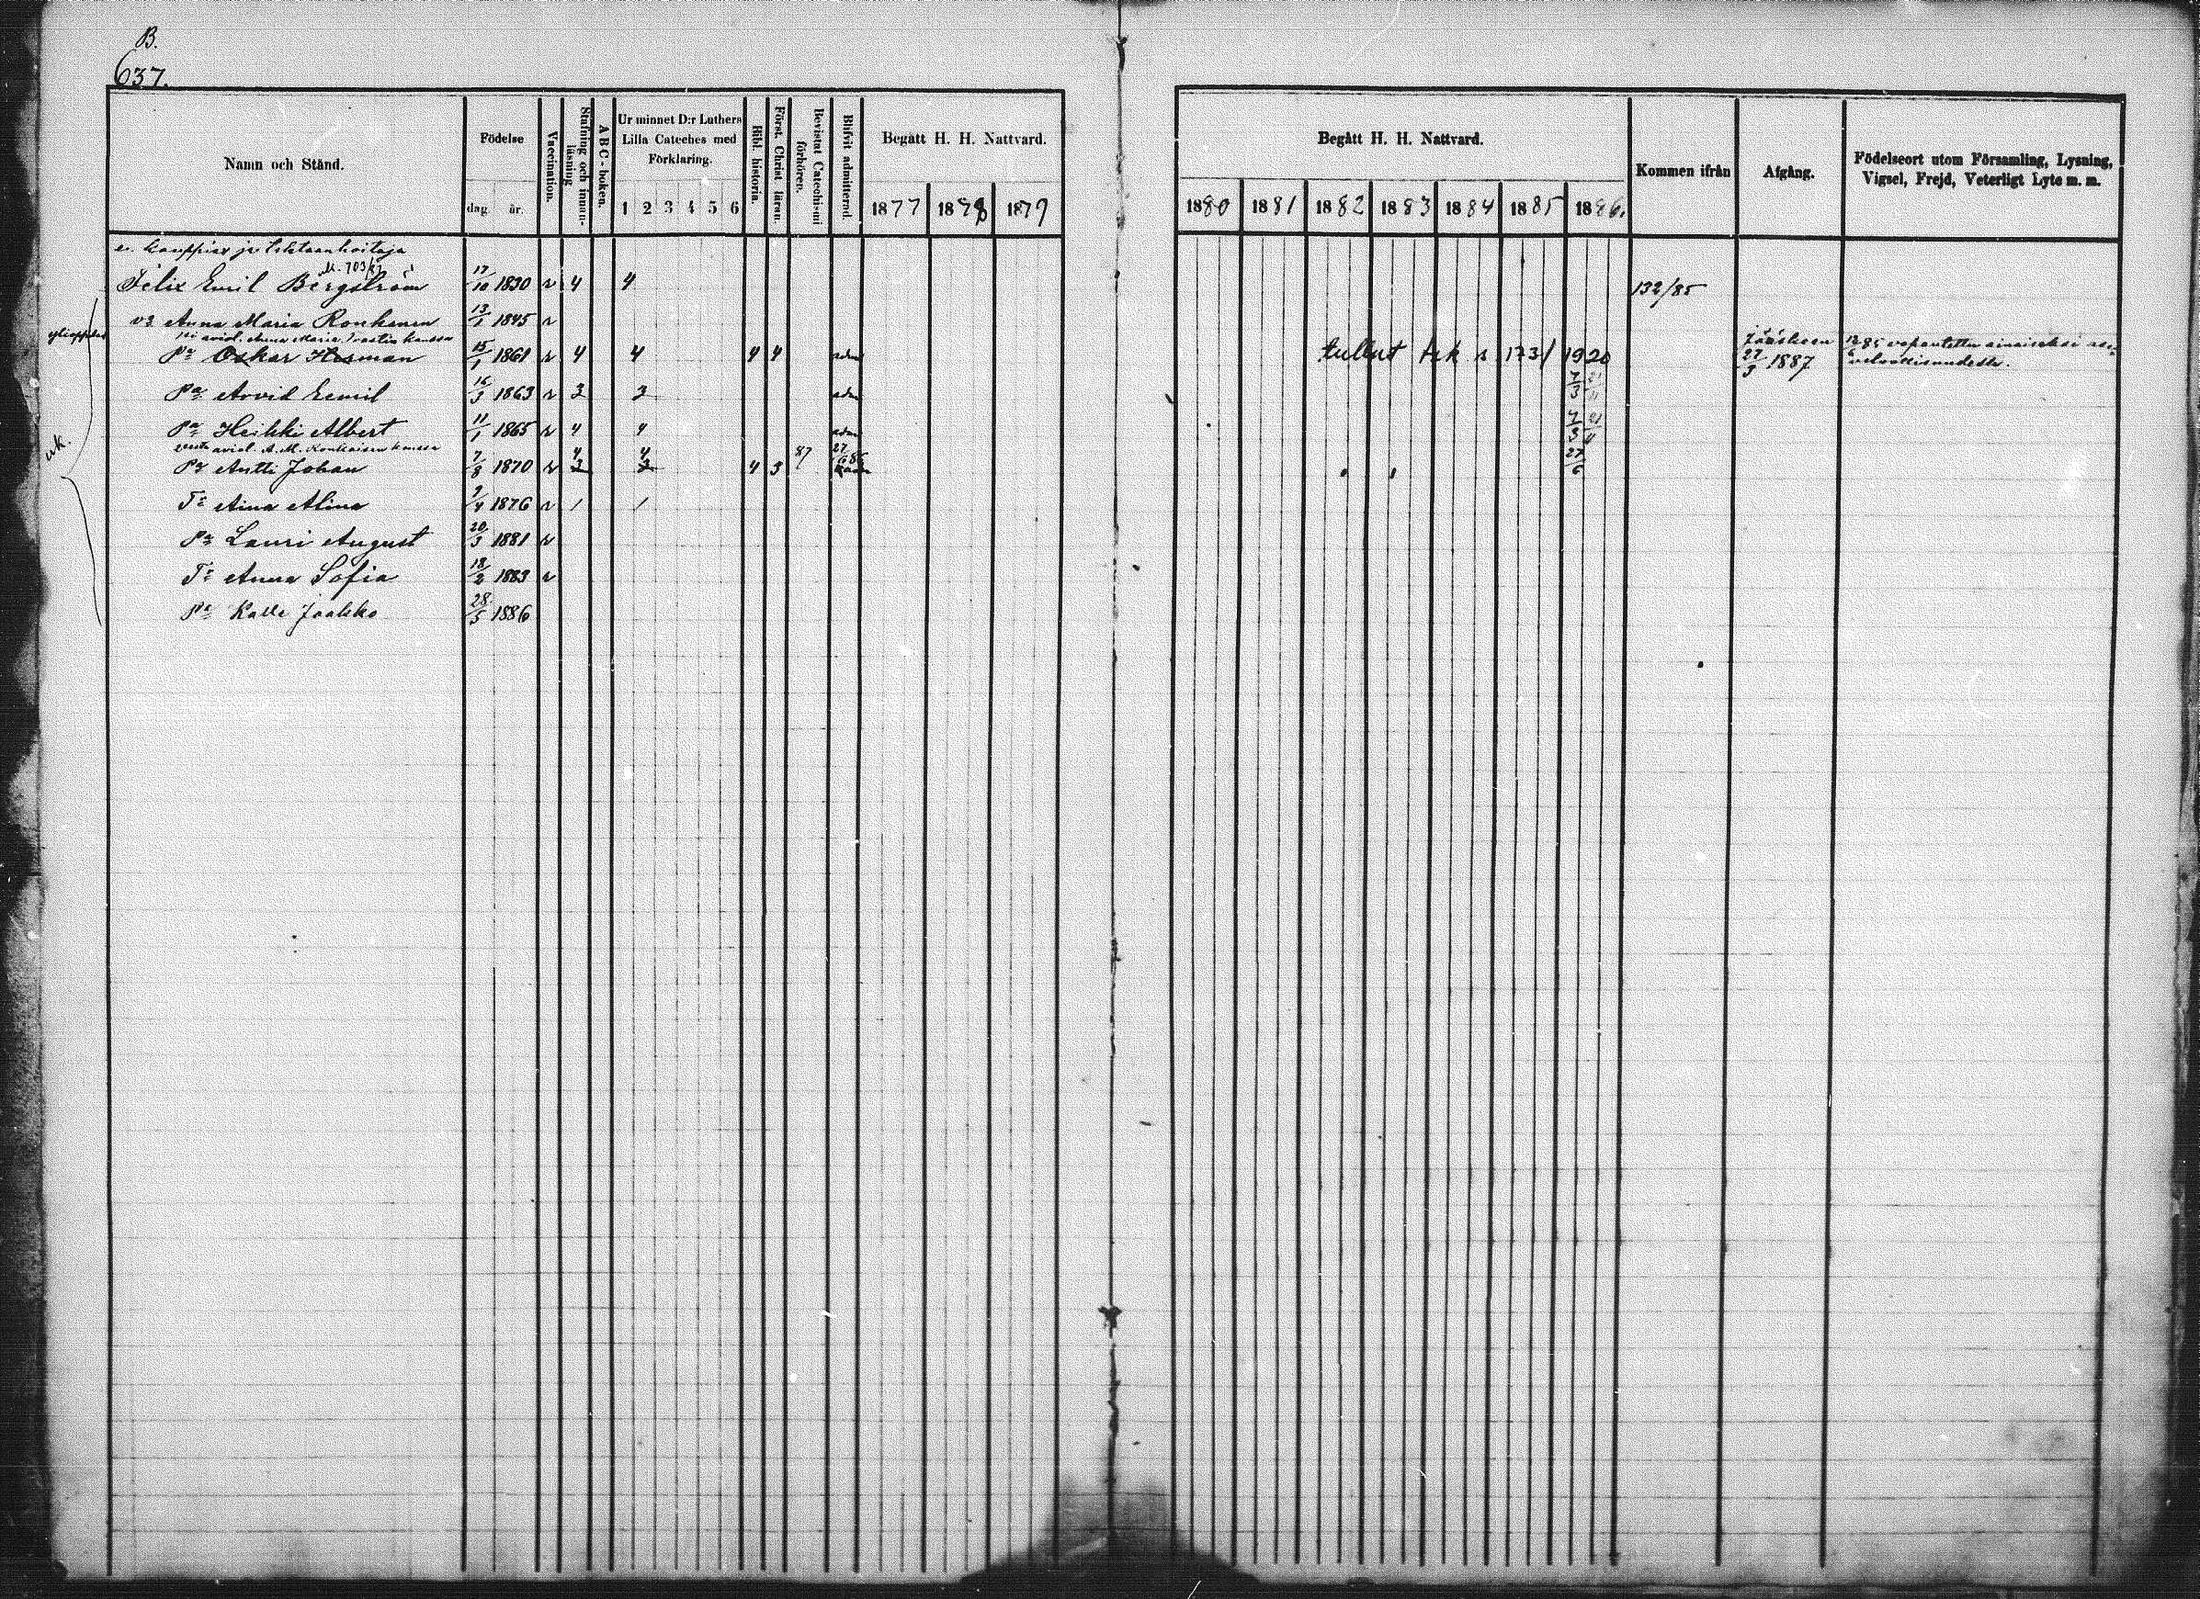 B.
637.
Namn och Stånd.
Födelse
dag. år.
Vaccination.
Stafning och innan-läsning
ABC-boken.
Ur minnet D:r Luthers Lilla Cateches med Förklaring.
1 2 3 4 5 6
Bibl. historia.
Först. Christ läran.
Bevistat Catechismi förhören.
Blifvit admitterad.
Begått H. H. Nattvard.
1877 1878 1879
Begått H. H. Nattvard.
1880 1881 1882 1883 1884 1885 1886.
Kommen ifrån
Afgång.
Födelseort utom Församling, Lysning, Vigsel, Frejd, Veterligt Lyte m. m.
e. kauppias ja
703/87
Felix Emil Bergström 17/10 1830 v 4 4 132/85
v3 Anna Maria Ronkanen 13/1 1845 v
aviol. Anna Maria
Pa Oskar Herman 15/1 1861 v 4 4 4 4 adm tullut 173/1920 27/3 1887
Pa Arvid Eemil 16/3 1863 v 3 3 adm 7/3 21/11
Pa Heikki Albert 11/1 1865 v 4 4 adm 7/3 21/4
aviol. A. M. Ronkaisen kanssa
Pa Antti Johan 7/8 1870 v 4 3 4 3 4 3 87 27/6 86 27/6
Tr Aina Alina 9/4 1876 v 1 1
Pa Lauri August 20/3 1881 v
Tr Anna Sofia 18/2 1883 v
Pa Kalle Jaakko 28/5 1886